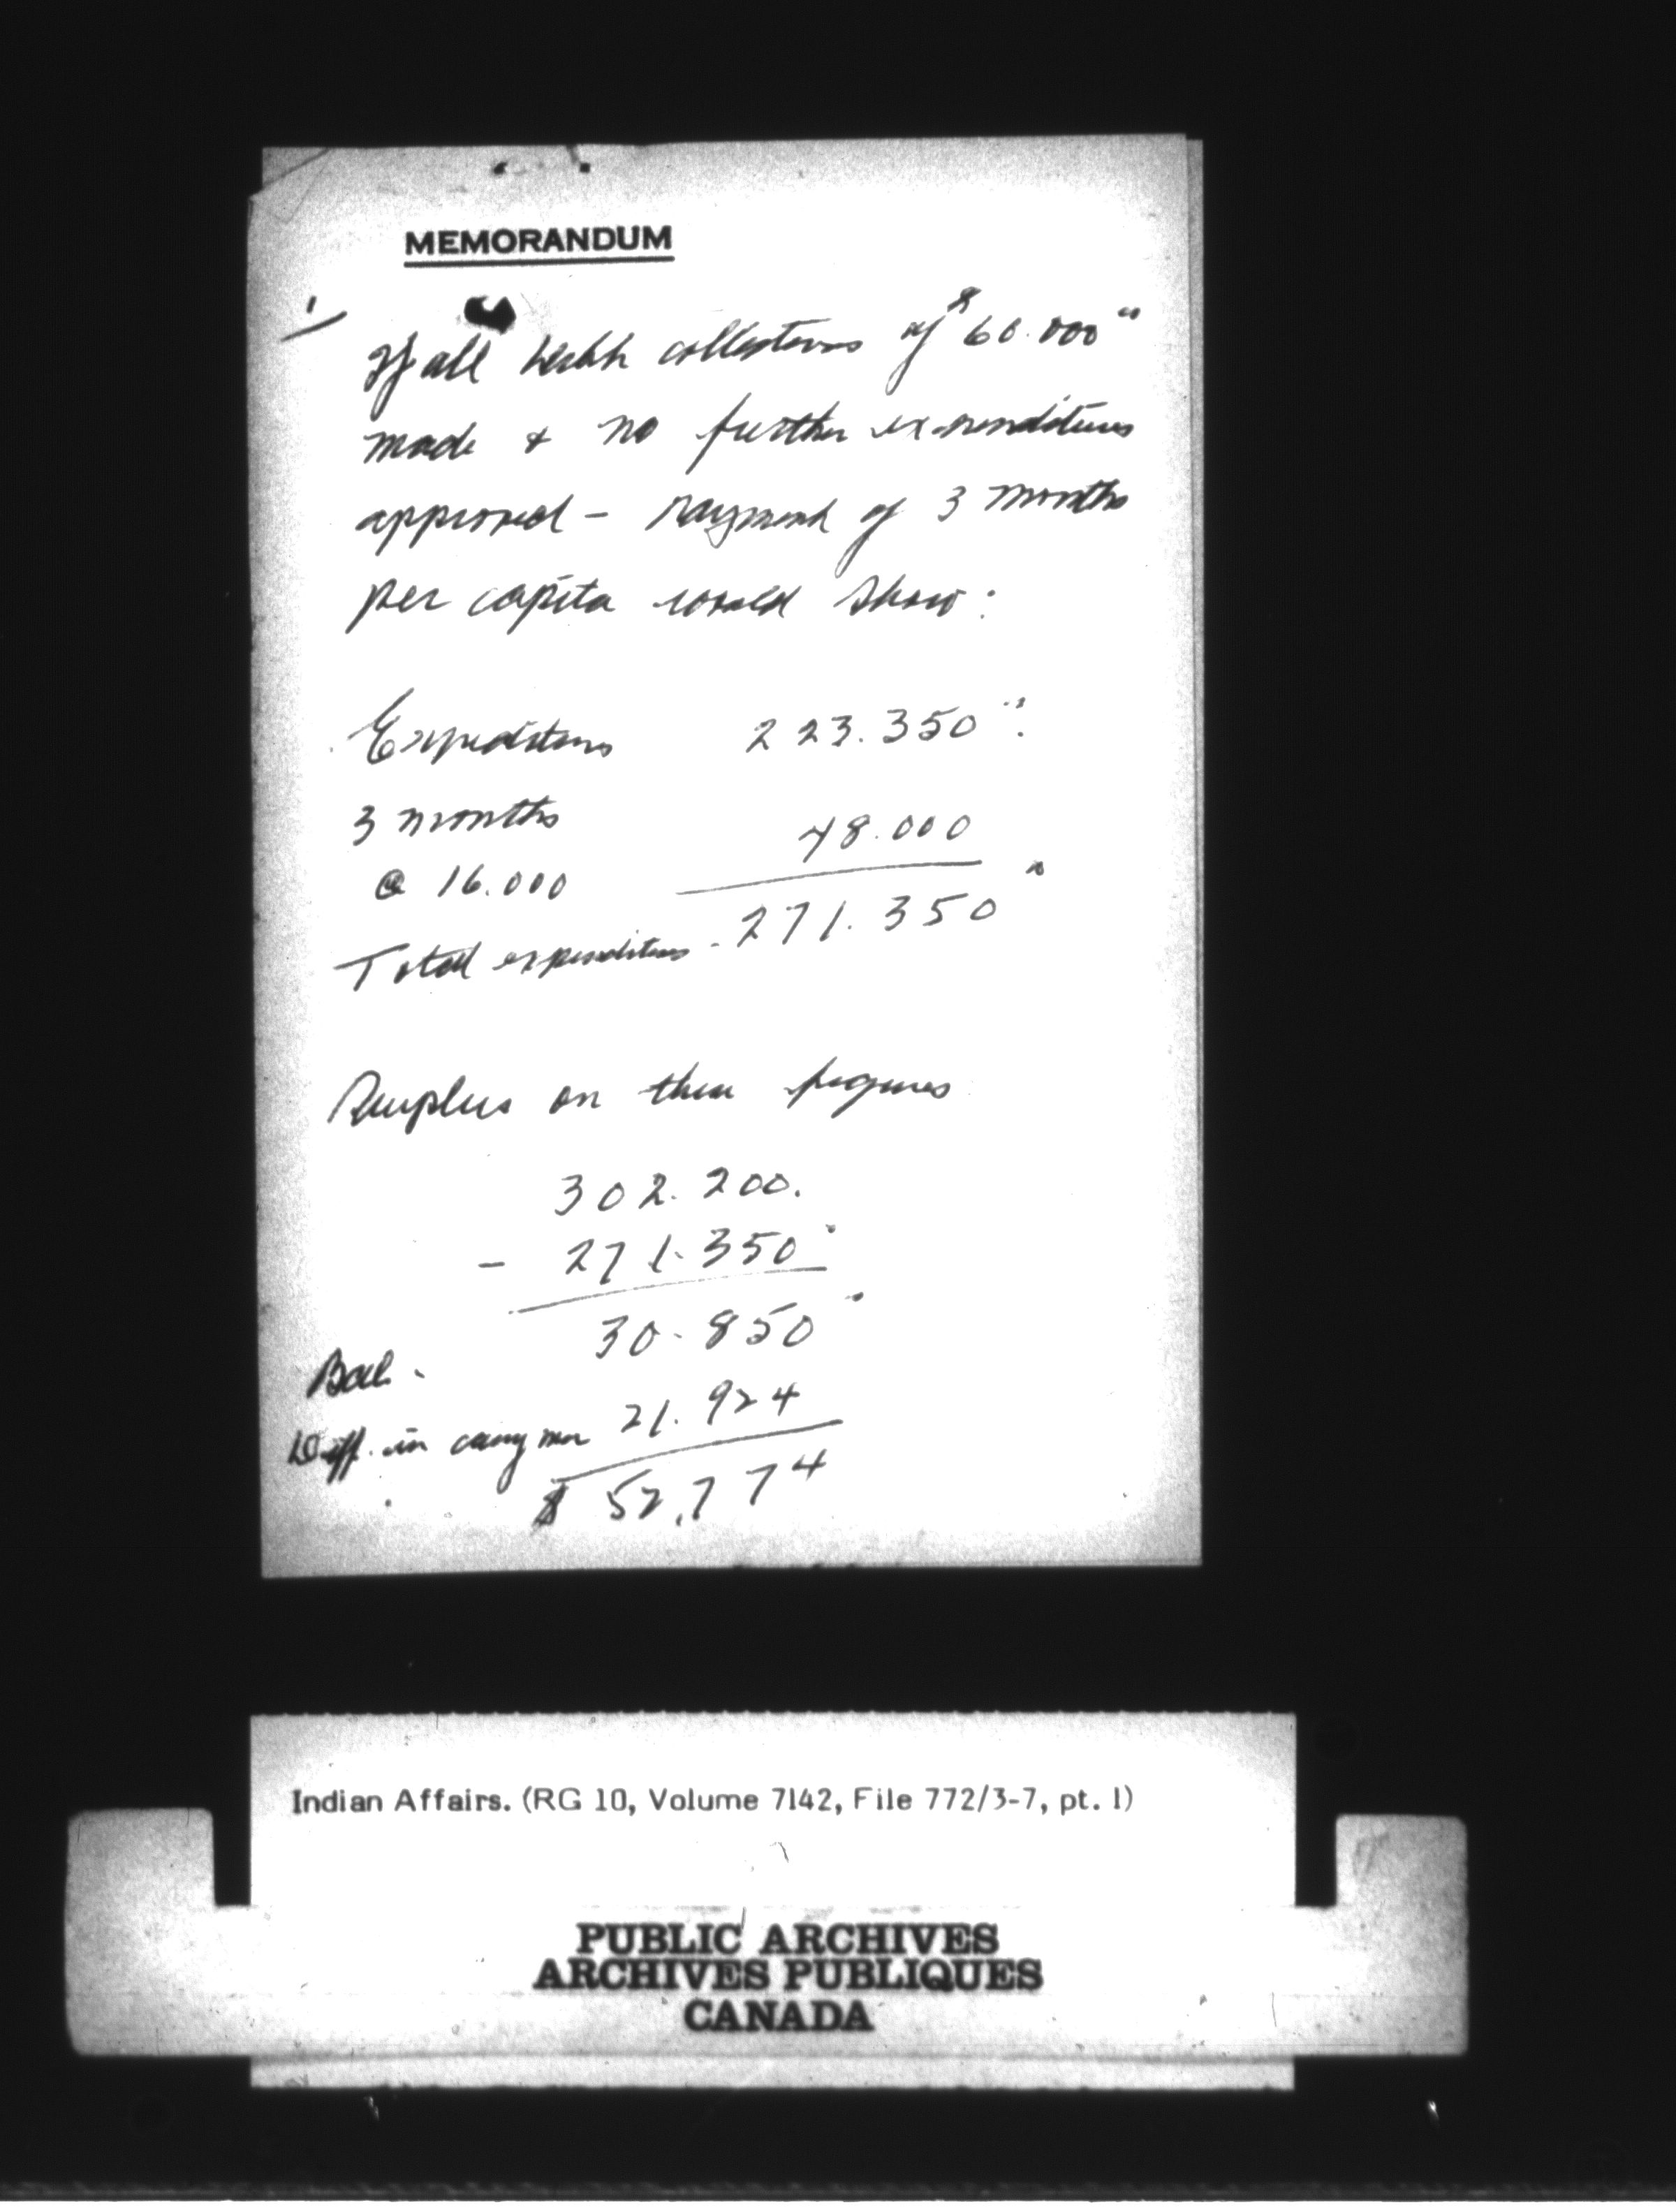 MEMORANDUM
1/
If all health collections of $60.000 00
made & no further expenditures
approved - payment of 3 months
per capita would show:
Expeditures 223.350 00
3 months 48.000
@ 16.000
Total expenditures - 271.350 00
Surplus on these figures
302.200.
- 271.350
30.850
Bal -
Diff. in carry over 21.924
$ 52,774
Indian Affairs. (RG 10, Volume 7142, File 772/3-7, pt. 1)
PUBLIC ARCHIVES
ARCHIVES PUBLIQUES
CANADA